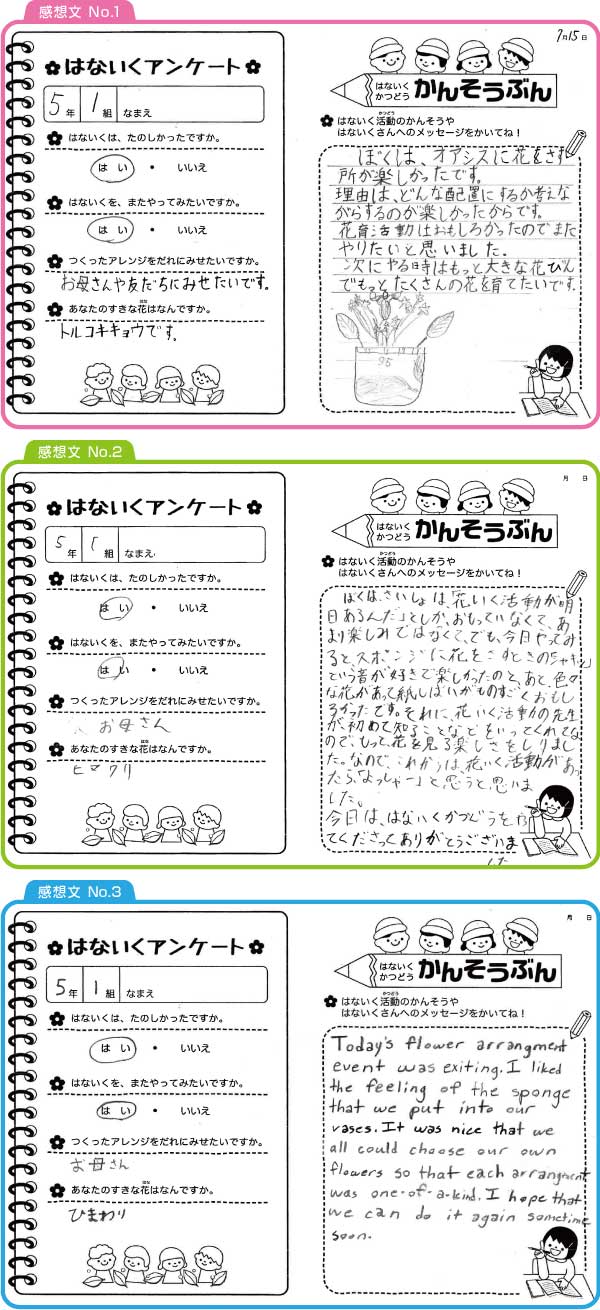 感想文 No.1
はないくアンケート
5年 1組 なまえ
はないくは、たのしかったですか。
はい ・ いいえ
はないくを、またやってみたいですか。
はい ・ いいえ
つくったアレンジをだれにみせたいですか。
お母さんや友だちにみせたいです。
あなたのすきな花はなんですか。
はな
トルコキキョウです。
7月15日
はないく
かつどう
かんそうぶん
かつどう
はないく活動のかんそうや
はないくさんへのメッセージをかいてね！
ぼくは、オアシスに花をさす
所が楽しかったです。
理由は、どんな配置にするか考えな
がらするのが楽しかったからです。
花育活動はおもしろかったのでまた
やりたいと思いました.
次にやる時はもっと大きな花びん
でもっとたくさんの花を育てたいです.
感想文 No.2
はないくアンケート
5年 1組 なまえ
はないくは、たのしかったですか。
はい ・ いいえ
はないくを、またやってみたいですか。
はい ・ いいえ
つくったアレンジをだれにみせたいですか。
お母さん
はな
あなたのすきな花はなんですか。
ヒマワリ
月 日
はないく
かつどう
かんそうぶん
かつどう
はないく活動のかんそうや
はないくさんへのメッセージをかいてね！
ぼくは、さいしょは、「花いく活動が明
日あるんだ」としか、おもっていなくて、あ
まり楽しみではなくて、でも、今日やってみ
ると、スポンジに花をさすときの「シャキッ」
という音が好きで楽しかったのと、あと、色々
な花があって紙しばいがものすごくおもし
ろかったです。それに、花いく活動の先生
が、初めて知ることなどをいってくれてな
ので、もっと、花を見る楽しさをしりまし
た。なので、これからは、花いく活動があっ
たら、「よっしゃー」と思うと思いま
した。
今日は、はないくかつどうをや
てくださってありがとうございま
した
感想文 No.3
はないくアンケート
5年 1組 なまえ
はないくは、たのしかったですか。
はい ・ いいえ
はないくを、またやってみたいですか。
はい ・ いいえ
つくったアレンジをだれにみせたいですか。
お母さん
はな
あなたのすきな花はなんですか。
ひまわり
月 日
はないく
かつどう
かんそうぶん
かつどう
はないく活動のかんそうや
はないくさんへのメッセージをかいてね！
Today's flower arrangment
event was exiting. I liked
the feeling of the sponge
that we put into our
vases. It was nice that we
all could choose our own
flowers so that each arrangment
was one-of-a-kind. I hope that
we can do it again sometime
soon.